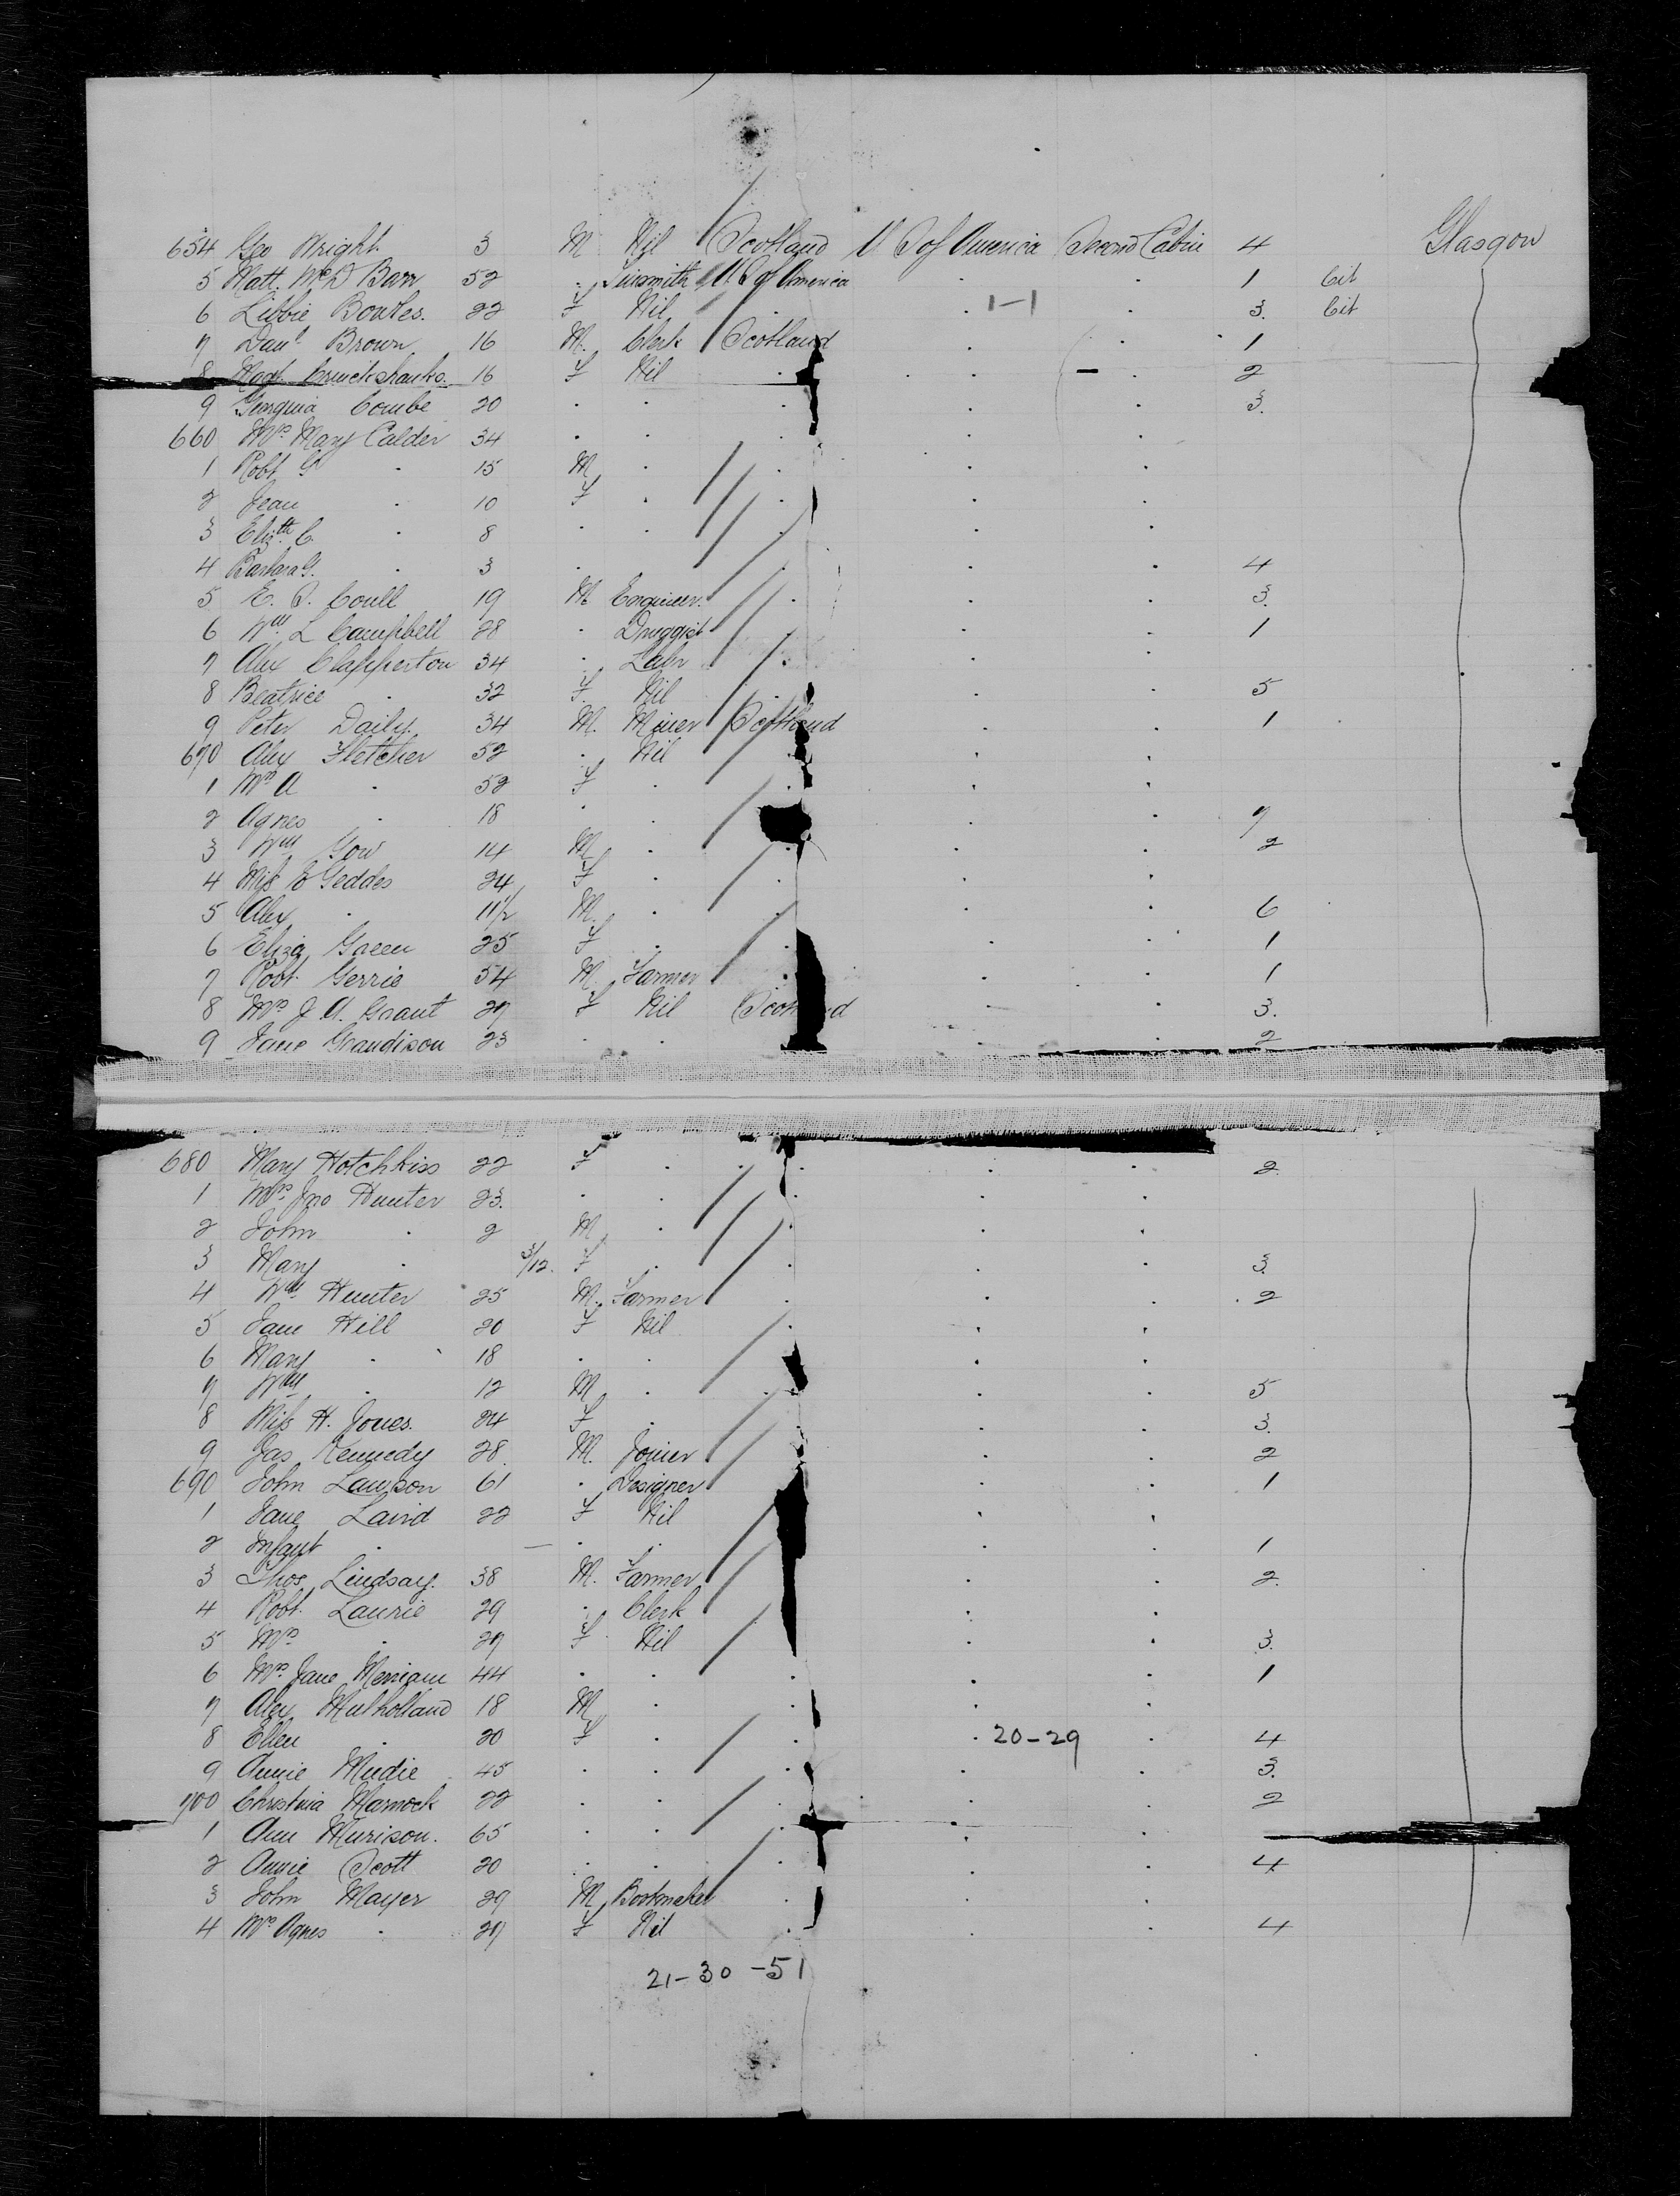 654 Geo Wright 3 M Nil Scotland U S of America Second Cabin 4 Glasgow
5 Matt. McD Barr 52 . Tinsmith U S of America . . 1 Cit
6 Libbie Bowles. 22 F Nil . . 1-1 . 3. Cit
7 Danl Brown 16 M. Clerk Scotland . . 1
8 Magt Cruickshanks. 16 F Nil . . . - 2
9 Georgina Combe 20 . . . . . 3.
660 Mrs Mary Calder 34 . . . . .
1 Robt G . 15 M . . . .
2 Jean . 10 F . . . .
3 Elizth C. . 8 . . . .
4 Barbara G. . 3 . . . 4
5 E. S. Coull 19 M Engineer. . . . 3.
6 Wm L Campbell 28 . Druggist . . 1
7 Alex Clapperton 34 . Labr . . .
8 Beatrice . 32 F. Nil . . . 5
9 Peter Daily. 34 M. Miner Scotland . . 1
670 Alex Fletcher 52 . Nil . .
1 Mrs A . 52 F . . .
2 Agnes . 18 . . . . 7
3 Wm Gow 14 M . . . . 2
4 Miss E Geddes 24 F . . . .
5 Alex . 11½ M. . . . . 6
6 Eliza Green 25 F . . . . 1
7 Robt Gerrie 54 M. Farmer . . . 1
8 Mrs J. A. Grant 27 F Nil Scotland . . 3.
9 Jane Grandison 23 . . . . 2
680 Mary Hotchkiss 22 F . . . . 2.
1 Mrs Jno Hunter 23. . . . . .
2 John . 2 M . . . .
3 Mary . 3/12. F . . . . 3.
4 Wm Hunter 25 M. Farmer . . . . 2
5 Jane Hill 20 F Nil . . .
6 Mary . 18 . . . .
7 Wm . 12 M . . . . 5
8 Miss H. Jones. 24 F . . . . 3.
9 Jas Kennedy 28. M. Joiner . . . 2
690 John Lawson 61 . Designer . . 1
1 Jane Laird 22 F Nil . .
2 Infant . — . . . . 1
3 Thos Lindsay. 38 M. Farmer . . 2.
4 Robt. Laurie 29 . Clerk . .
5 Mrs . 27 F Nil . . 3.
6 Mrs Jane Merriam 44 . . . . . 1
7 Alex Mulholland 18 M . . . .
8 Ellen . 20 F . . . 20-29 . 4
9 Annie Mudie 45 . . . . . 3.
700 Christina Marnock 22 . . . . . 2
1 Ann Murison. 65 . . . .
2 Annie Scott 20 . . . . . 4
3 John Mayer 29 M Bootmaker . . .
4 Mrs Agnes . 27 F Nil . . . 4
21-30-51